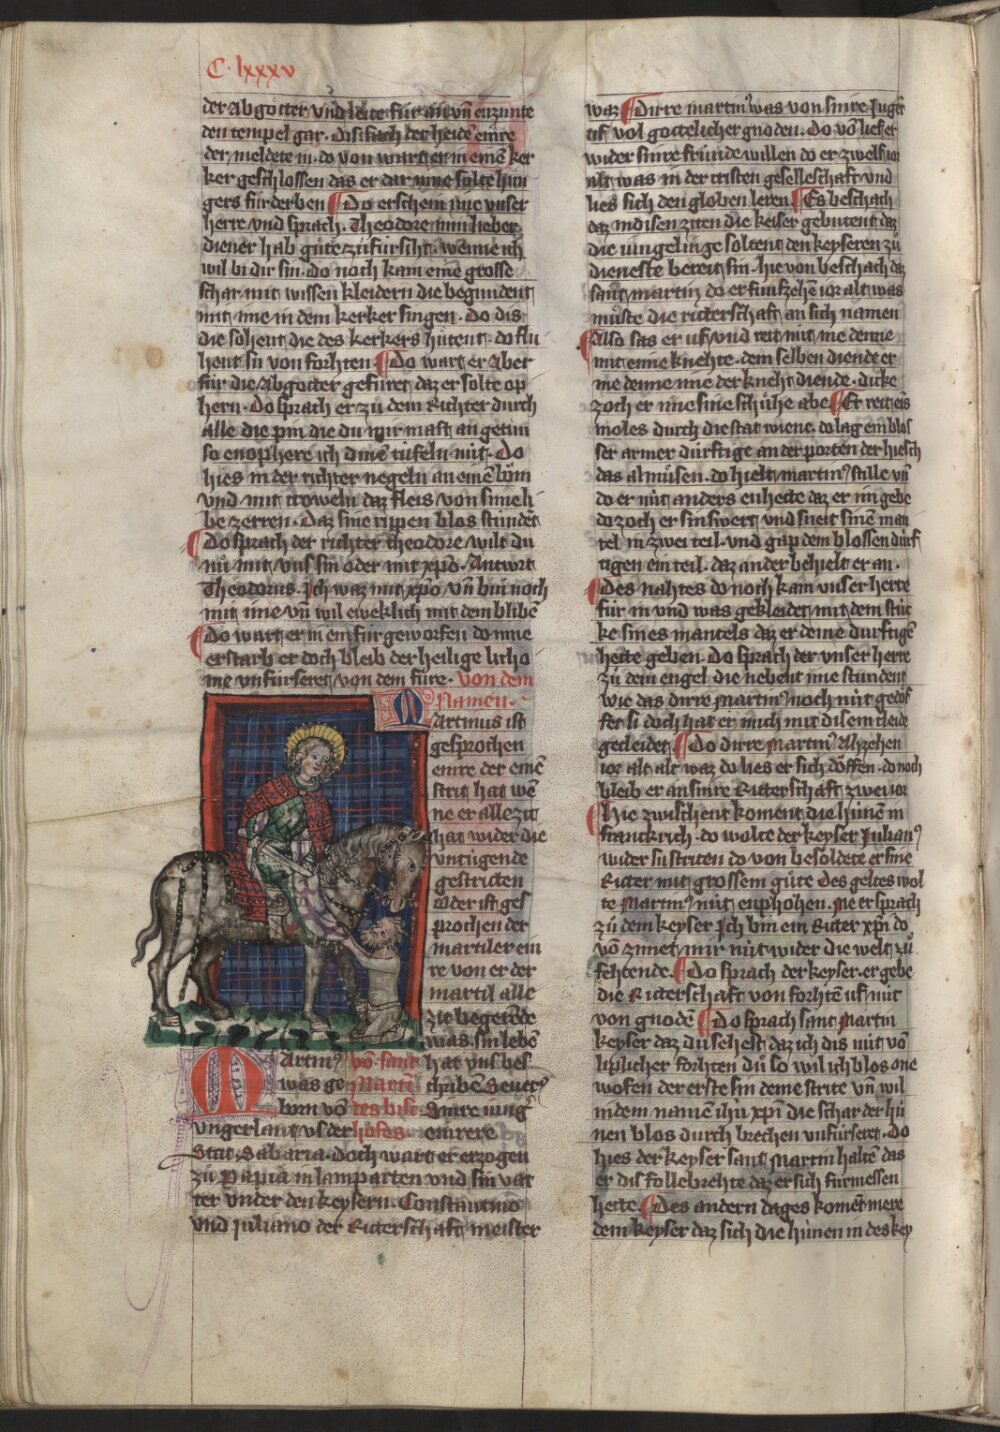 C · lxxxv
der abgötter vnd leite für an vñ enzunte
den tempel gar. dis sach der heide einre
der meldete in. do von wart er in einē ker
ker geschlossen das er dar inne solte hun
gers fürderben ¶ Do erschein ime vnser
herre vnd sprach. Theodore min lieber
diener hab gůte zůfürsiht. wenne ich
wil bi dir sin. do noch kam eine grosse
schar mit wissen kleidern die begundent
mit ime in dem kerker singen. Do dis
die sohent die des kerkers hůtent. do flu
hent sü von forhten ¶ Do wart er Aber
für die Abgötter gefüret daz er solte op
hern. Do sprach er zů dem Richter durch
alle die pin die du mir maht an getůn
so enophere ich dinen tüfeln nüt. Do
hies in der richter negeln an einē bŏm
vnd mit krŏweln daz fleis von sime li
be zerren. Daz sine rippen blos stůndēt
¶ Do sprach der richter theodore wilt du
nů mit vns sin oder mit xp̄o. Antwort
Theodorus. Ich waz mit xp̄o vñ bin noch
mit ime vñ wil eweklich mit dem blibē
¶ Do wart er in ein für geworfen do inne
erstarb er doch bleib der heilige licho
me vnfürseret von dem füre. von dem
Namen.
Martinus ist
gesprochen
einre der einē
strit hat wē
ne er alle zit
hat wider die
vntugende
gestritten
Oder ist ges
prochen der
martiler ein
re von er der
martil alle
zit begerēde
was. sin lebē
hat vns bes
chribē Seuerꝰ
sinre iung͛
einre
vō sant
Marti
des bisc
hofes
Martinꝰ
was ge
born vō
vngerlant vs der
Stat. Sabaria. doch wart er erzogen
zů Papia in lamparten vnd sin vat
ter vnder den keysern. Constantino
vnd Juliano der Ritterschaft meister
waz ¶ Dirre martinꝰ was von sinre Juge͂t
uf vol göttelicher gnoden. Do vō lief er
wider sinre fründe willen do er zwelf ior
alt was in der cristen geselleschaft vnd
lies sich den glŏben leren ¶ Es beschach
daz in disen ziten die keiser gebutent daz
die iungelinge soltent den keyseren zů
dieneste bereit sin. hie von beschach dz
sant martin do er fünfzehē ior alt was
můste die ritterschaft an sich nemen
¶ Also sas er uf vnd reit mit ime denne
mit eime knehte. dem selben diende er
me denne ime der kneht diende. dicke
zoch er ime sine schůhe abe ¶ Er reit eis
moles durch die stat wiene. do lag ein blos
ser armer dürftige an der porten der hiesch
das almůsen. do hielt martinꝰ stille vñ
do er nüt anders enhette daz er im gebe
do zoch er sin swert vnd sneit sinē man
tel in zwei teil. vnd gap dem blossen dürf
tigen ein teil. daz ander behielt er an.
¶ Des nahtes do noch kam vnser herre
für in vnd was gekleidet mit dem stüc
ke sines mantels daz er deme dürftigē
hette geben. Do sprach der vnser herre
zů dem engel die nebent ime stůndent
wie das dirre Martinꝰ noch nüt getŏf
fet si doch hat er mich mit disem cleide
gecleidet ¶ Do dirre Martinꝰ Ahzehen
ior alt waz do lies er sich dŏffen. do noch
bleib er an sinre Ritterschaft zwei ior
¶ Hie zwüschent koment die hünen in
franckrich. do wolte der keyser Julianꝰ
wider sü striten do von besoldete er sine
Ritter mit grossem gůte des geltes wol
te Martinꝰ nüt enphohen. Me er sprach
zů dem keyser Ich bin ein Ritter xp̄i do
vō zimet mir nüt wider die welt zů
fehtende. ¶ Do sprach der keyser. er gebe
die Ritterschaft von forhtē uf nüt
von gnodē ¶ Do sprach sant Martin
keyser daz du sehest daz ich dis nüt vō
liplicher forhten dů. so wil ich blos one
wofen der erste sin deme strite vñ wil
in dem namē ih̄u xp̄i die schar der hü
nen blos durch brechen vnfürseret. Do
hies der keyser sant Martin haltē das
er dis follebrehte daz er sich fürmessen
hette ¶ Des andern dages komēt mere
dem keyser daz sich die hünen in des key